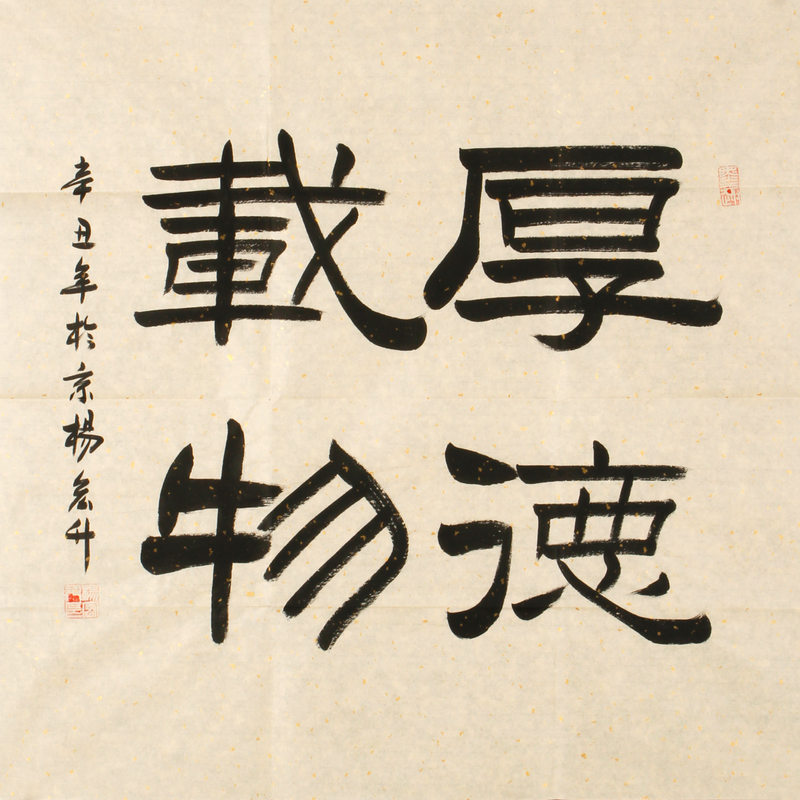 厚德
載物
辛丑年於京楊宏升